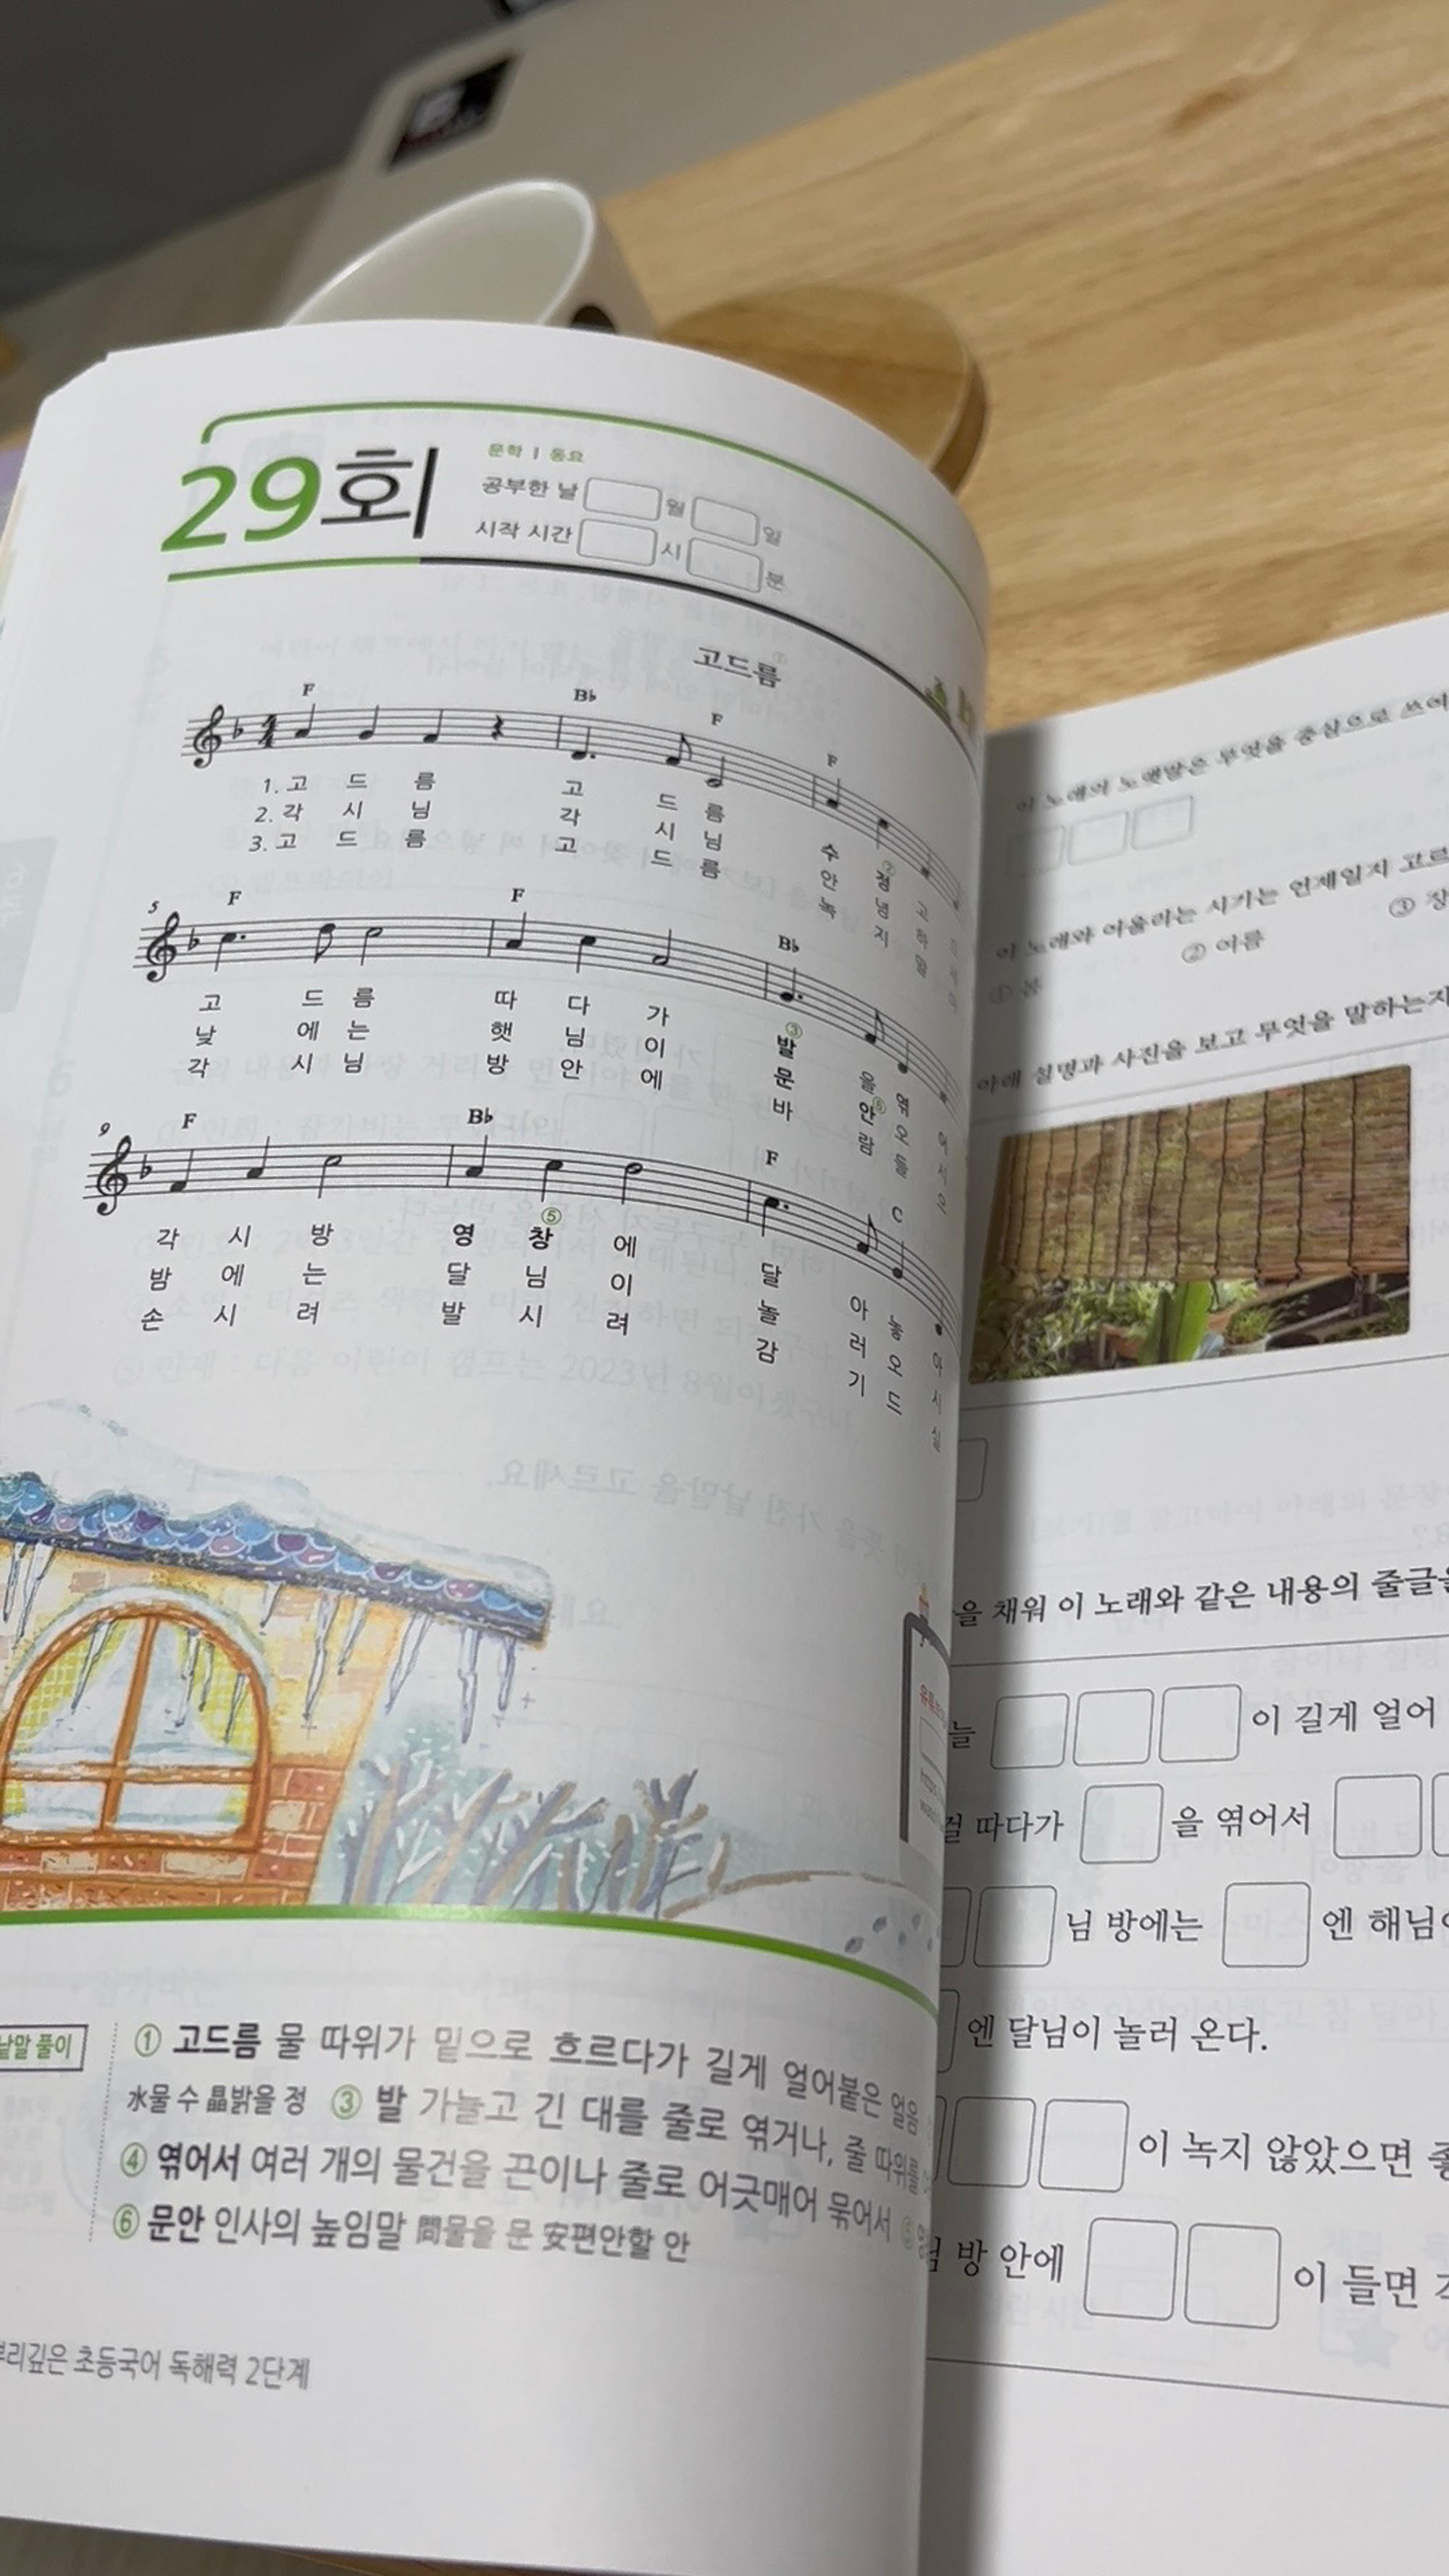 29회
문학 | 동요
공부한 날 월 일
시작 시간 시 분
고드름
F B♭ F F
1. 고 드 름 고 드 름 수 정 고 드
2. 각 시 님 각 시 님 안 녕 하
3. 고 드 름 고 드 름 녹 지 말
5
F F B♭
고 드 름 따 다 가 ③발 을 엮 어
낮 에 는 햇 님 이 문 안 ⑥ 오 시
각 시 님 방 안 에 바 람 들
9
F B♭ F C
각 시 방 영 ⑤창 에 달 아 놓 아
밤 에 는 달 님 이 놀 러 오 시
손 시 려 발 시 려 감 기 드 실
낱말 풀이
① 고드름 물 따위가 밑으로 흐르다가 길게 얼어붙은 얼음
水물 수 晶밝을 정 ③ 발 가늘고 긴 대를 줄로 엮거나, 줄 따위를
④ 엮어서 여러 개의 물건을 끈이나 줄로 어긋매어 묶어서 ⑤
⑥ 문안 인사의 높임말 問물을 문 安편안할 안
뿌리깊은 초등국어 독해력 2단계
이 노래의 노랫말은 무엇을 중심으로 쓰여
이 노래와 어울리는 시기는 언제일지 고르
① 봄 ② 여름 ③
아래 설명과 사진을 보고 무엇을 말하는지
을 채워 이 노래와 같은 내용의 줄글을
늘 이 길게 얼어
걸 따다가 을 엮어서
님 방에는 엔 해님이
엔 달님이 놀러 온다.
이 녹지 않았으면 좋
님 방 안에 이 들면